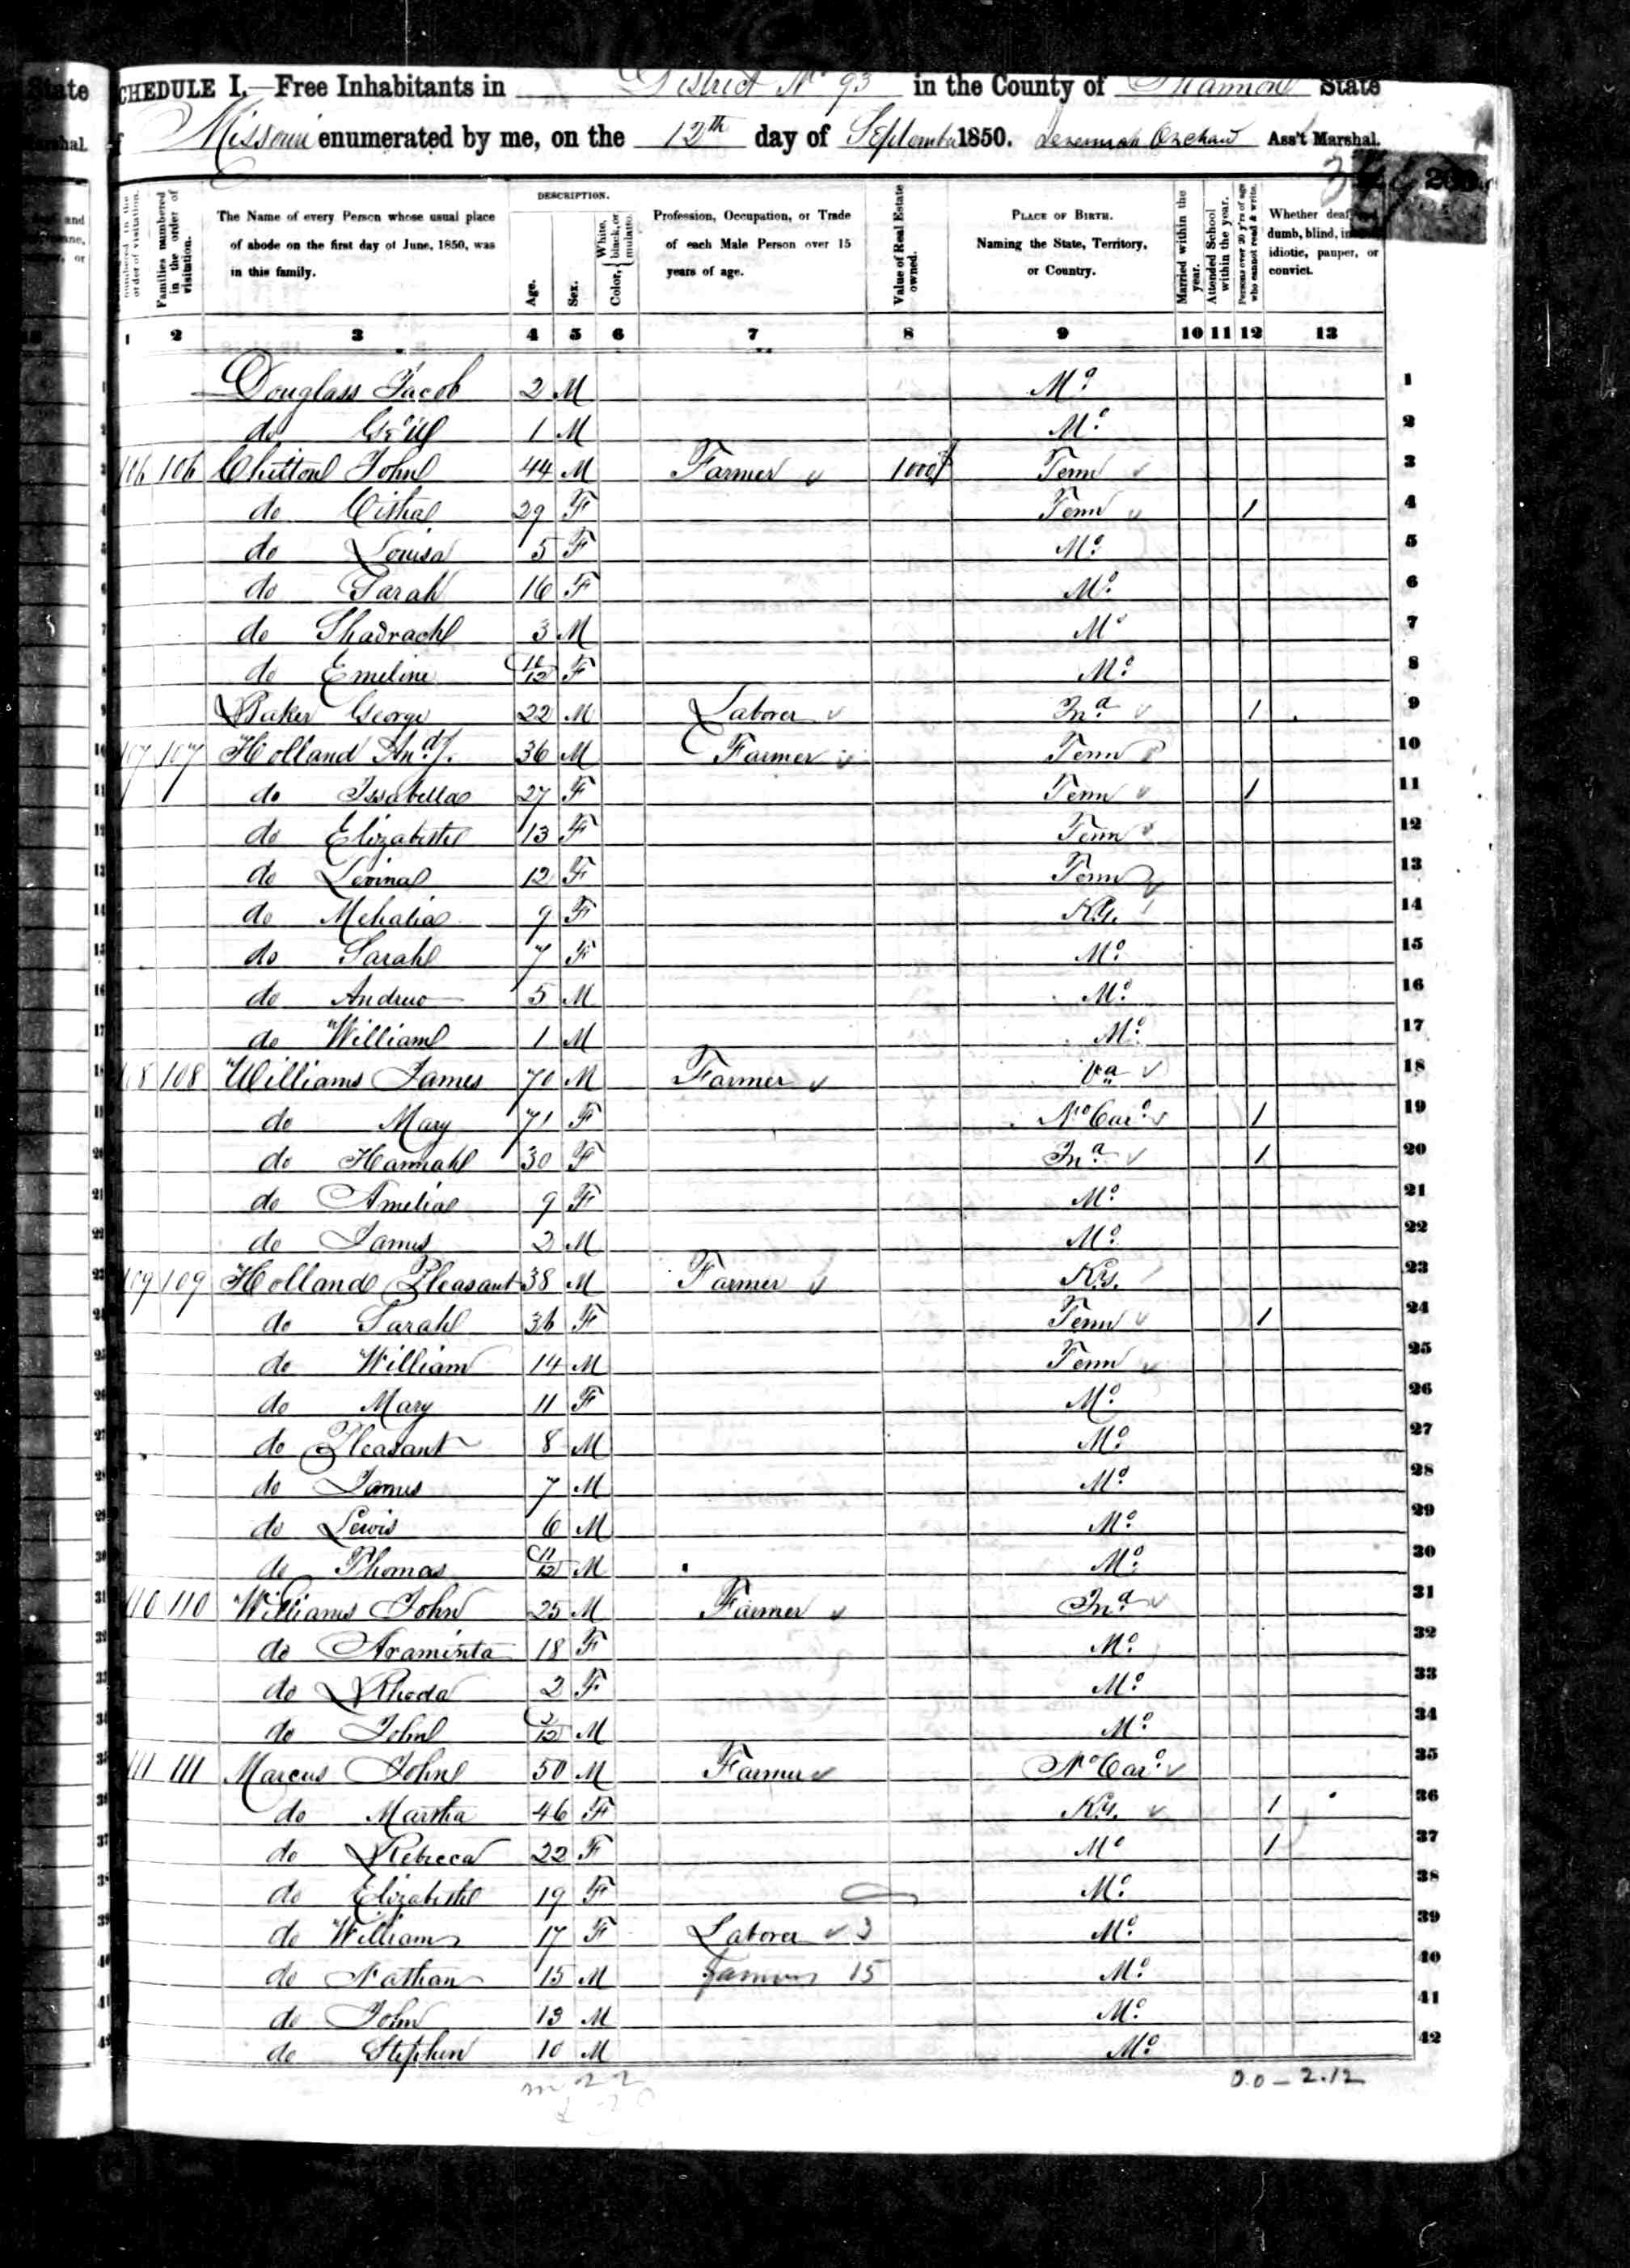 State
CHEDULE I.—Free Inhabitants in District No 93 in the County of Shannon State
of Missouri enumerated by me, on the 12th day of September 1850. Jeremiah Orchard Ass't Marshal.
numbered in the order of visitation.
Families numbered in the order of visitation.
The Name of every Person whose usual place of abode on the first day of June, 1850, was in this family.
DESCRIPTION.
Age.
Sex.
Color, White, black, or mulatto.
Profession, Occupation, or Trade of each Male Person over 15 years of age.
Value of Real Estate owned.
PLACE OF BIRTH. Naming the State, Territory, or Country.
Married within the year.
Attended School within the year.
Persons over 20 y'rs of age who cannot read & write.
Whether deaf and dumb, blind, idiotic, pauper, or convict.
1 2 3 4 5 6 7 8 9 10 11 12 13
Douglass Jacob 2 M Mo 1
do 1 M Mo 2
106 106 Chitton John 44 M Farmer 1000$ Tenn 3
do Citha 29 F Tenn 1 4
do Louisa 5 F Mo 5
do Sarah 16 F Mo 6
do Shadrach 3 M Mo 7
do Emeline 11/12 F Mo 8
Baker George 22 M Laborer Ina 1 9
107 107 Holland And. J. 36 M Farmer Tenn 10
do Issabella 27 F Tenn 1 11
do Elizabeth 13 F Tenn 12
do Levina 12 F Tenn 13
do Mehalia 9 F Ky. 14
do Sarah 7 F Mo 15
do Andrew 5 M Mo 16
do William 1 M Mo 17
108 108 Williams James 70 M Farmer Va 18
do Mary 71 F No Caro 1 19
do Hannah 30 F Ina 1 20
do Amelia 9 F Mo 21
do James 2 M Mo 22
109 109 Holland Pleasant 38 M Farmer Ky. 23
do Sarah 36 F Tenn 1 24
do William 14 M Tenn 25
do Mary 11 F Mo 26
do Pleasant 8 M Mo 27
do James 7 M Mo 28
do Lewis 6 M Mo 29
do Thomas 11/12 M Mo 30
110 110 Williams John 25 M Farmer Ina 31
do Araminta 18 F Mo 32
do Rhoda 2 F Mo 33
do John M Mo 34
111 111 Marcus John 50 M Farmer No Caro 35
do Martha 46 F Ky. 1 36
do Rebecca 22 F Mo 1 37
do Elizabeth 19 F Mo 38
do William 17 F Laborer 3 Mo 39
do Nathan 15 M Farmer 15 Mo 40
do John 13 M Mo 41
do Stephen 10 M Mo 42
m 22
0.0 – 2.12